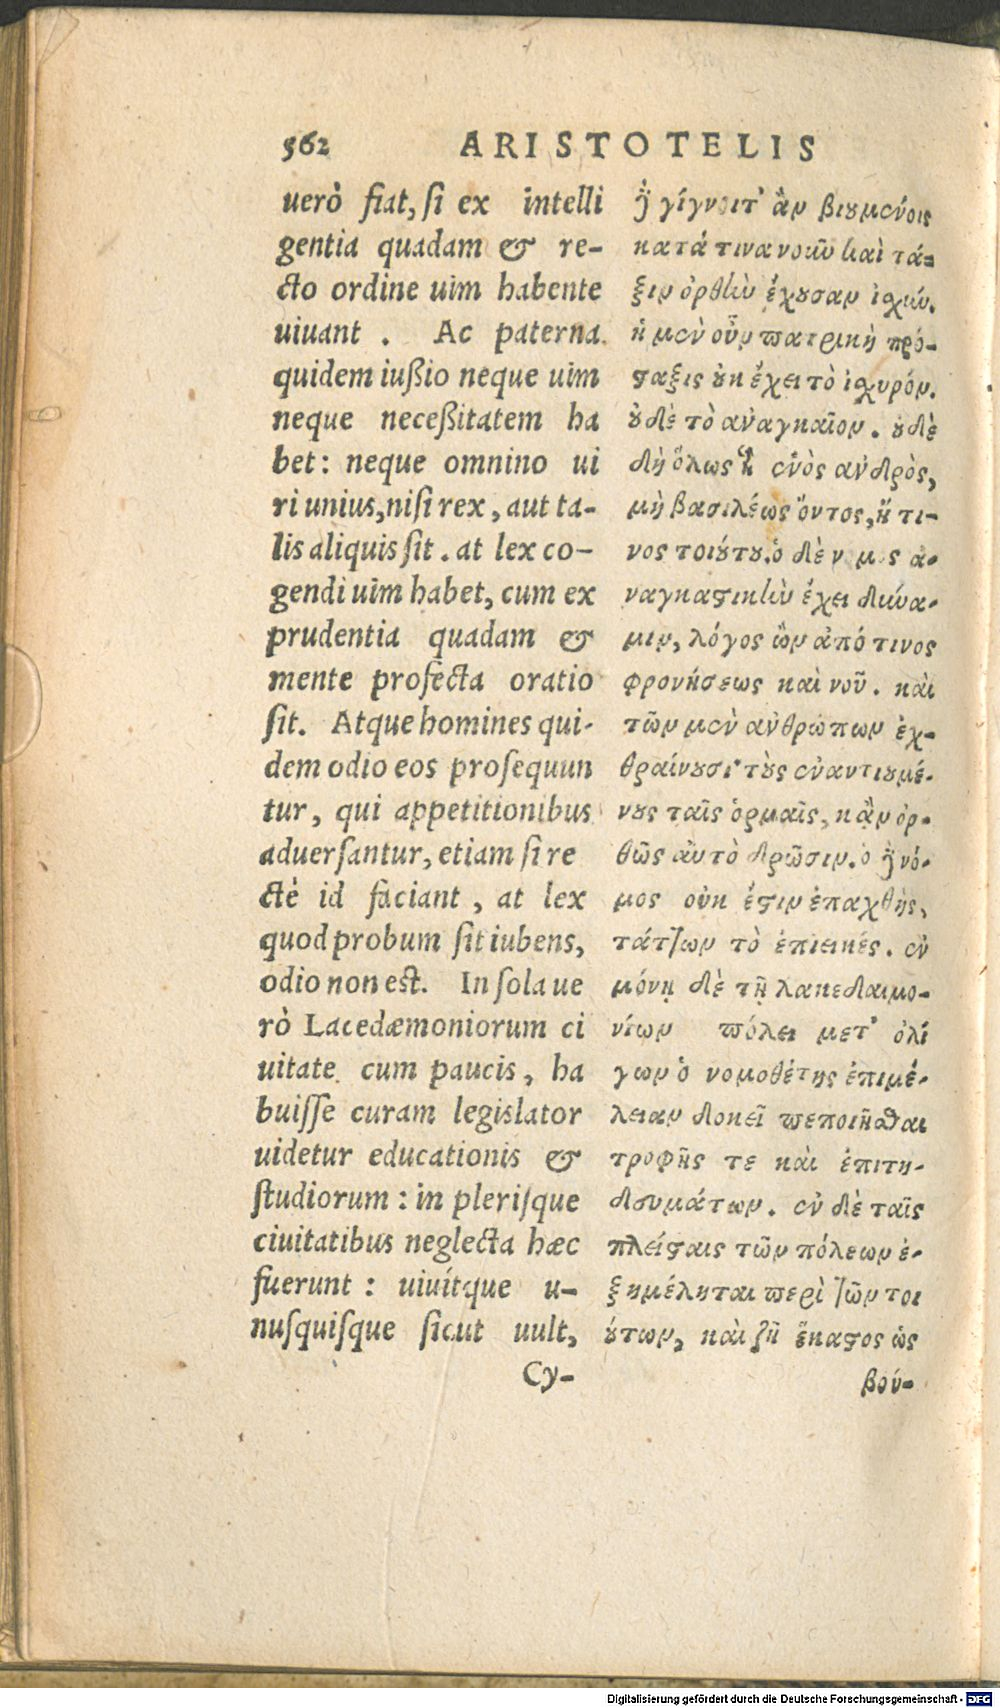 562 ARISTOTELIS
uerò fiat, si ex intelli
gentia quadam & re-
cto ordine uim habente
uiuant . Ac paterna
quidem iußio neque uim
neque neceßitatem ha
bet: neque omnino ui
ri unius, nisi rex, aut ta-
lis aliquis sit. at lex co-
gendi uim habet, cum ex
prudentia quadam &
mente profecta oratio
sit. Atque homines qui-
dem odio eos prosequun
tur, qui appetitionibus
aduersantur, etiam si re
ctè id faciant, at lex
quod probum sit iubens,
odio non est. In sola ue
rò Lacedæmoniorum ci
uitate cum paucis, ha
buisse curam legislator
uidetur educationis &
studiorum: in plerisque
ciuitatibus neglecta hæc
fuerunt: uiuítque u-
nusquisque sicut uult,
Cy-
δὲ γίγνοιτ' ἂν βιουμένοις
κατά τινα νοῦν καὶ τά-
ξιν ὀρθὴν ἔχουσαν ἰσχύν.
ἡ μὲν οὖν πατρικὴ πρό-
σταξις οὐκ ἔχει τὸ ἰσχυρόν.
οὐδὲ τὸ ἀναγκαῖον. οὐδὲ
δὴ ὅλως ἡ ἑνὸς ἀνδρὸς,
μὴ βασιλέως ὄντος, ἤ τι-
νος τοιούτου. ὁ δὲ νόμος ἀ-
ναγκαστικὴν ἔχει δύνα-
μιν, λόγος ὢν ἀπό τινος
φρονήσεως καὶ νοῦ. καὶ
τῶν μὲν ἀνθρώπων ἐχ-
θραίνουσι τοὺς ἐναντιουμέ-
νους ταῖς ὁρμαῖς, κἂν ὀρ-
θῶς αὐτὸ δρῶσιν. ὁ δὲ νό-
μος οὐκ ἔστιν ἐπαχθὴς,
τάττων τὸ ἐπιεικές. ἐν
μόνῃ δὲ τῇ λακεδαιμο-
νίων πόλει μετ' ὀλί
γων ὁ νομοθέτης ἐπιμέ-
λειαν δοκεῖ πεποιῆσθαι
τροφῆς τε καὶ ἐπιτη-
δευμάτων. ἐν δὲ ταῖς
πλείσταις τῶν πόλεων ἐ-
ξημέληται περὶ τῶν τοι
ούτων, καὶ ζῇ ἕκαστος ὡς
βού-
Digitalisierung gefördert durch die Deutsche Forschungsgemeinschaft - DFG